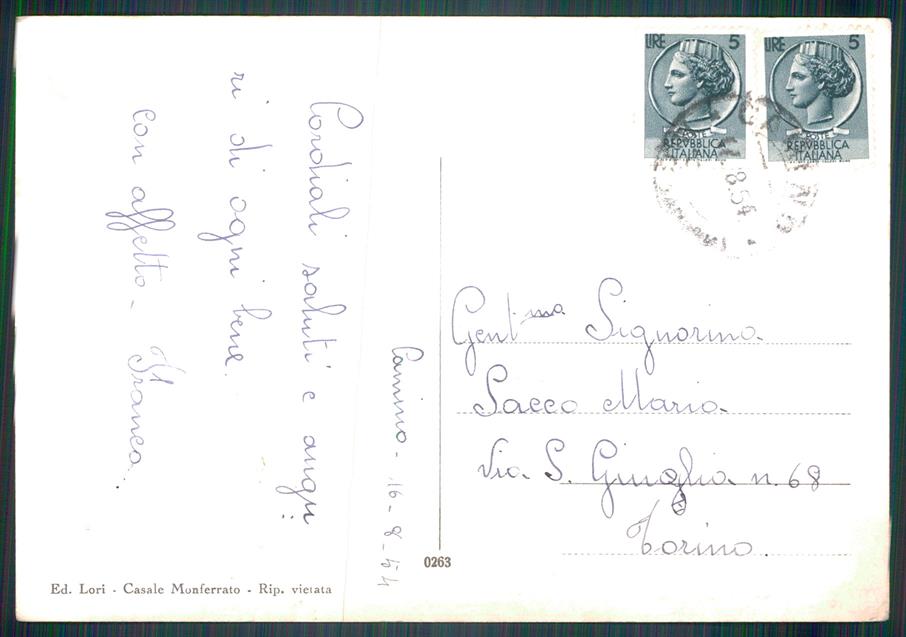 Cordiali saluti e augu
ri di ogni bene.
con affetto - Franca.
Camino - 16 - 8 - 54
LIRE 5
POSTE
REPVBBLICA
ITALIANA
LIRE 5
POSTE
REPVBBLICA
ITALIANA
8.54
Gent.ma Signorina
Sacco Maria
Via S. n. 68
Torino.
0263
Ed. Lori - Casale Monferrato - Rip. vietata